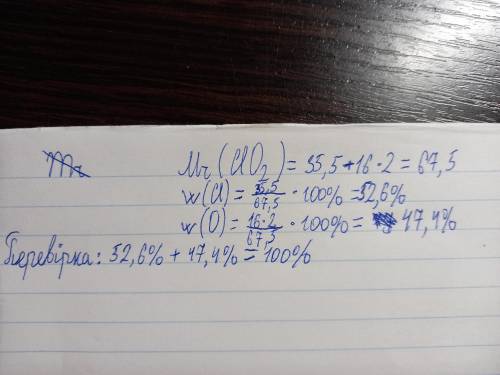 Mr (ClO₂) = 35,5 + 16 · 2 = 67,5
w(Cl) = 35,5/67,5 · 100% = 52,6%
w(O) = 16·2/67,5 · 100% = 47,4%
Перевірка: 52,6% + 47,4% = 100%